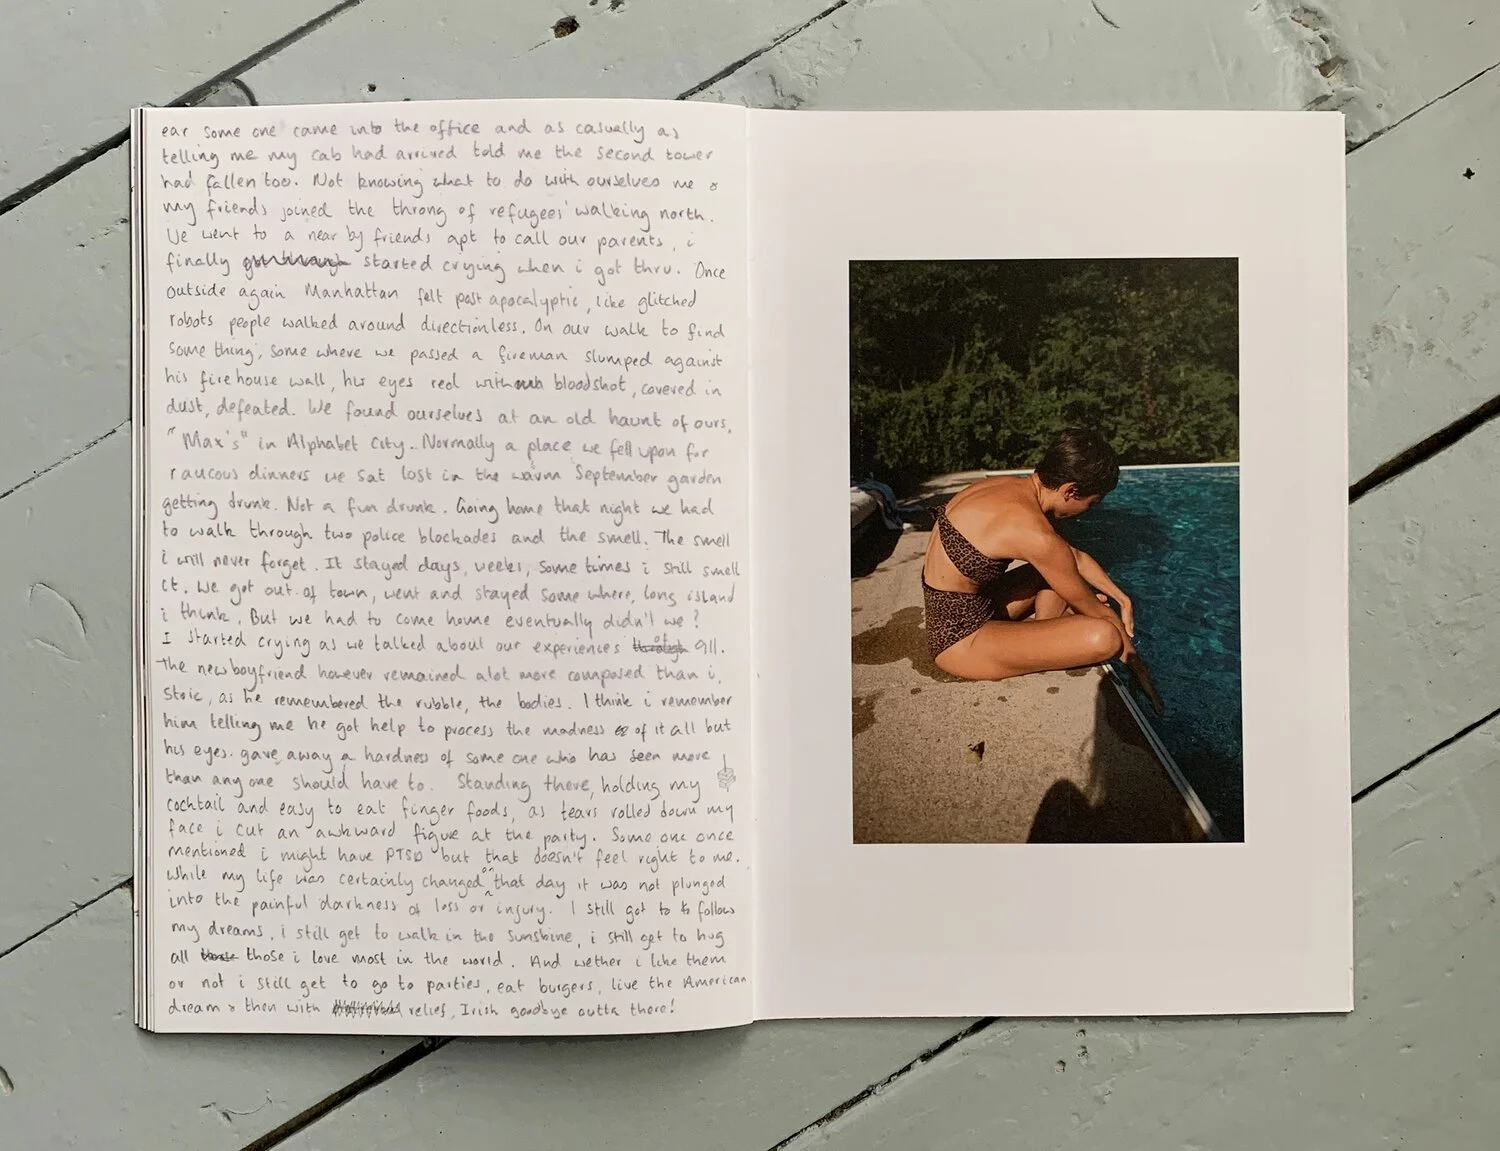 ear some one came into the office and as casually as
telling me my cab had arrived told me the second tower
had fallen too. Not knowing what to do with ourselves me &
my friends joined the throng of 'refugees' walking north.
We went to a near by friends apt to call our parents, i
finally started crying when i got thru. Once
outside again Manhattan felt post apocalyptic, like glitched
robots people walked around directionless. On our walk to find
something, some where we passed a fireman slumped against
his firehouse wall, his eyes red with bloodshot, covered in
dust, defeated. We found ourselves at an old haunt of ours,
"Max's" in Alphabet City. Normally a place we fell upon for
raucous dinners we sat lost in the warm September garden
getting drunk. Not a fun drunk. Going home that night we had
to walk through two police blockades and the smell. The smell
i will never forget. It stayed days, weeks, some times i still smell
it. We got out of town, went and stayed some where, long island
i think, But we had to come home eventually didn't we?
I started crying as we talked about our experiences of 911.
The new boyfriend however remained alot more composed than i,
Stoic, as he remembered the rubble, the bodies. I think i remember
him telling me he got help to process the madness of it all but
his eyes. gave away a hardness of some one who has seen more
than any one should have to. Standing there, holding my
cocktail and easy to eat finger foods, as tears rolled down my
face i cut an awkward figure at the party. Some one once
mentioned i might have PTSD but that doesn't feel right to me.
While my life was certainly changed on that day it was not plunged
into the painful darkness of loss or injury. I still got to follow
my dreams, i still get to walk in the sunshine, i still get to hug
all those i love most in the world. And wether i like them
or not i still get to go to parties, eat burgers, live the American
dream & then with relief, Irish goodbye outta there!